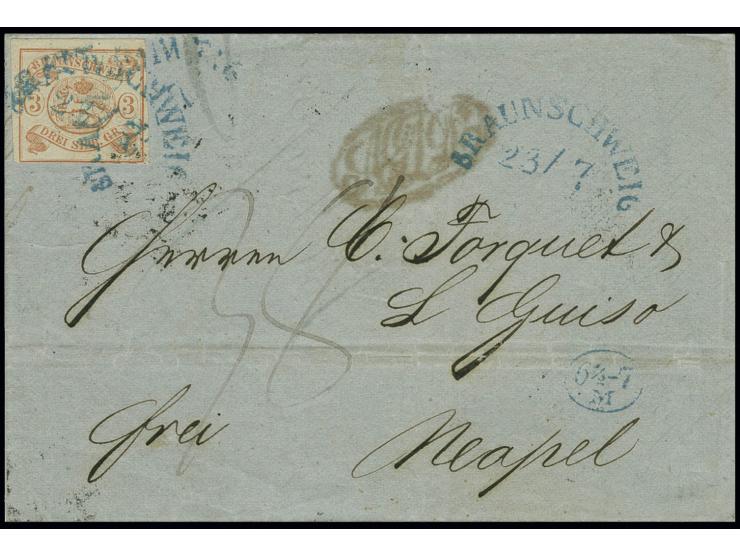 BRAUNSCHWEIG
3 3
DREI SILB. GR.
BRAUNSCHWEIG
23/7
Herren C. Forquet &
L Guiso
38
6½-7
M
frei Neapel